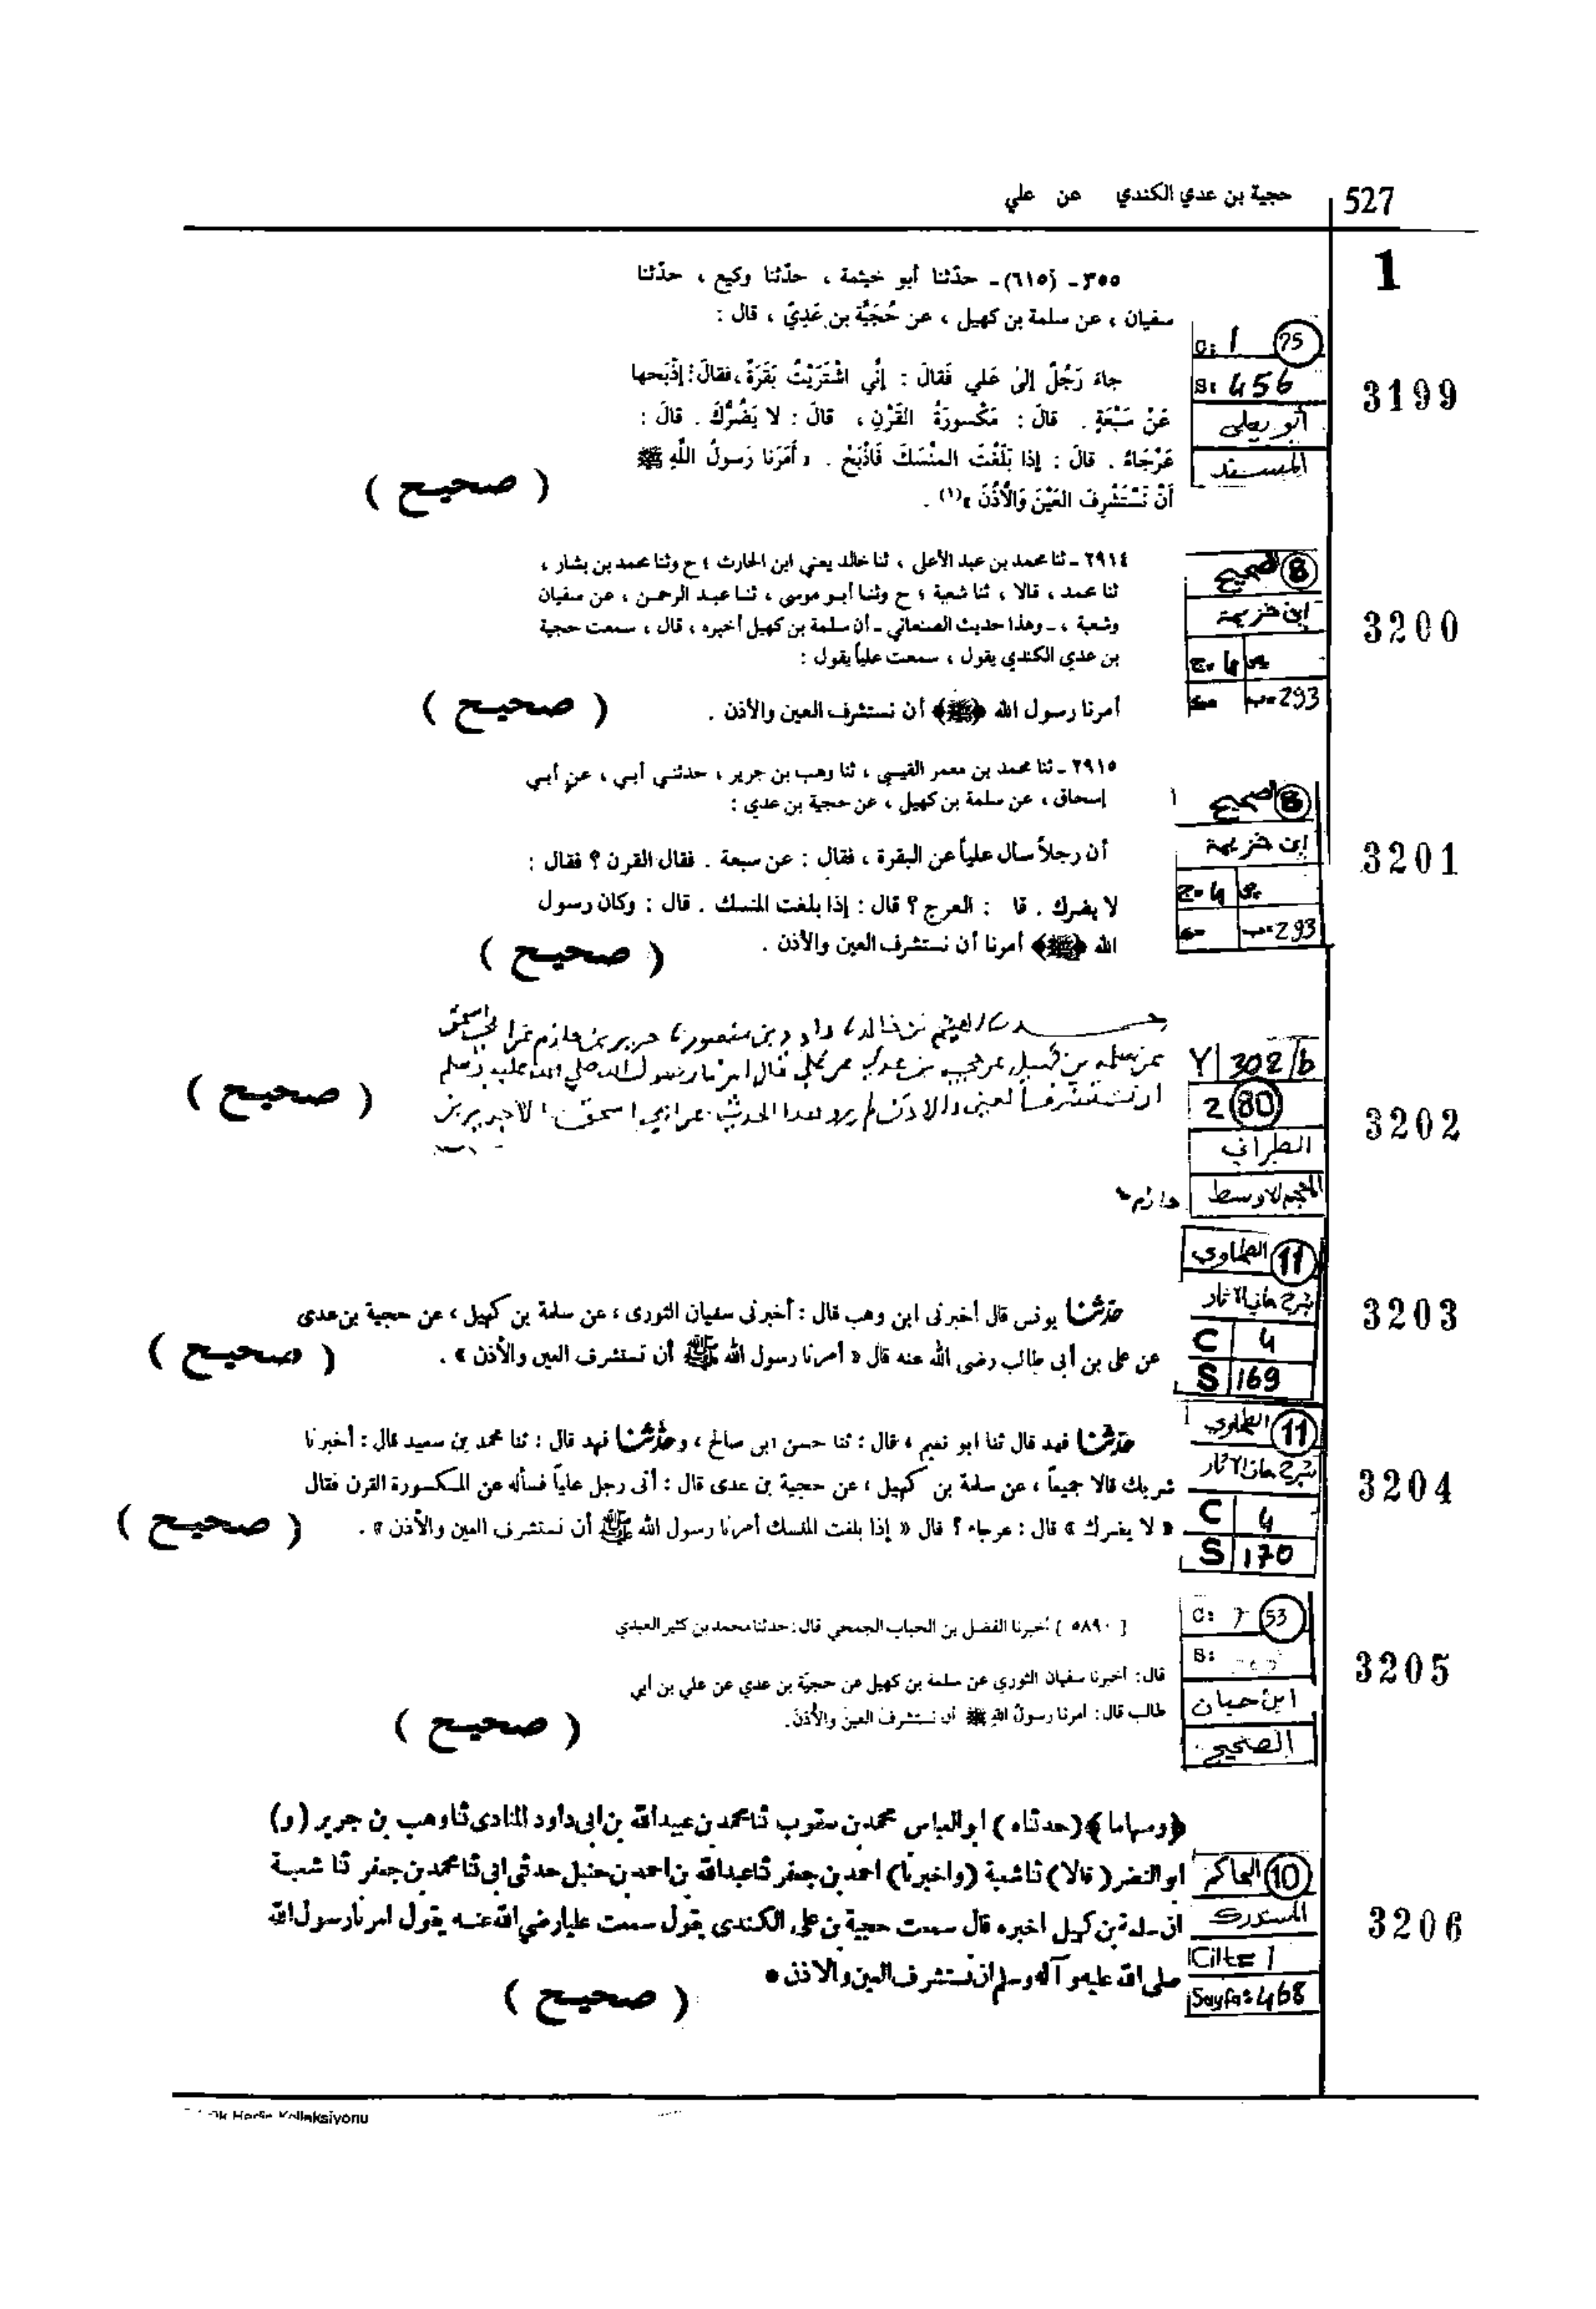 527 حجية بن عدي الكندي عن علي
1
٣٥٥ - (٦١٥) - حدّثنا أبو خيثمة ، حدّثنا وكيع ، حدّثنا
سفيان ، عن سلمة بن كهيل ، عن حُجَيَّة بن عَدِيّ ، قال :
C: 1 75
S: 456
أبو يعلى
المسند
3199
جاءَ رَجُلٌ إلىٰ عَلي فَقالَ : إنِّي اشْتَرَيْتُ بَقَرَةً ، فقالَ : إذْبَحها
عَنْ سَبْعَةٍ . قالَ : مَكْسورَةُ القَرْنِ ، قالَ : لا يَضُرُّكَ . قالَ :
عَرْجَاءُ . قالَ : إذا بَلَغْتَ المنْسَكَ فَاذْبَحْ . « أَمَرَنا رَسولُ اللَّهِ ﷺ
أَنْ نَسْتَشْرِفَ العَيْنَ وَالأُذُنَ »(١) .
( صحيح )
٢٩١٤ - ثنا محمد بن عبد الأعلى ، ثنا خالد يعني ابن الحارث ؛ ح وثنا محمد بن بشار ،
ثنا محمد ، قالا ، ثنا شعبة ؛ ح وثنا أبو موسى ، ثنا عبد الرحمن ، عن سفيان
وشعبة ، - وهذا حديث الصنعاني - أن سلمة بن كهيل أخبره ، قال ، سمعت حجية
بن عدي الكندي يقول ، سمعت علياً يقول :
أمرنا رسول الله ﴿ﷺ﴾ أن نستشرف العين والأذن .
( صحيح )
8 الصحيح
ابن خزيمة
ج- 4
293
3200
٢٩١٥ - ثنا محمد بن معمر القيسي ، ثنا وهب بن جرير ، حدثني أبي ، عن أبي
إسحاق ، عن سلمة بن كهيل ، عن حجية بن عدي :
أن رجلاً سأل علياً عن البقرة ، فقال : عن سبعة . فقال القرن ؟ فقال :
لا يضرك . قا : العرج ؟ قال : إذا بلغت المنسك . قال : وكان رسول
الله ﴿ﷺ﴾ أمرنا أن نستشرف العين والأذن .
( صحيح )
8 الصحيح
ابن خزيمة
ج- 4
293
3201
الهيثم بن خالد داود بن منصور جرير بن حازم عن ابي اسحق
عن سلمه بن كهيل عن حجيه بن عدي عن علي قال امرنا رسول الله صلي الله عليه وسلم
ان نستشرف العين والاذن لم يرو هذا الحديث عن ابي اسحق الا جرير بن
حازم
( صحيح )
Y 302/b
2 80
الطبراني
المعجم الاوسط
3202
11 الطحاوي
شرح معاني الآثار
C 4
S 169
3203
حدثنا يونس قال أخبرنى ابن وهب قال : أخبرنى سفيان الثورى ، عن سلمة بن كهيل ، عن حجية بن عدى
عن على بن أبى طالب رضى الله عنه قال « أمرنا رسول الله ﷺ أن نستشرف العين والأذن » .
( صحيح )
11 الطحاوي
شرح معاني الآثار
C 4
S 170
3204
حدثنا فهد قال ثنا ابو نعيم ، قال : ثنا حسن ابى صالح ، وحدثنا فهد قال : ثنا محمد بن سعيد قال : أخبرنا
شريك قالا جميعاً ، عن سلمة بن كهيل ، عن حجية بن عدى قال : أتى رجل علياً فسأله عن المكسورة القرن فقال
« لا يضرك » قال : عرجاء ؟ قال « إذا بلغت المنسك أمرنا رسول الله ﷺ أن نستشرف العين والأذن » .
( صحيح )
[ ٥٨٩٠ ] أخبرنا الفضل بن الحباب الجمحي قال : حدثنا محمد بن كثير العبدي
قال : أخبرنا سفيان الثوري عن سلمة بن كهيل عن حجيّة بن عدي عن علي بن أبي
طالب قال : أمرنا رسولُ اللهِ ﷺ أن نستشرفَ العينَ والأُذنَ .
( صحيح )
C: 7 53
S:
ابن حبان
الصحيح
3205
﴿ومنها ما﴾ (حدثناه) ابو العباس محمد بن يعقوب ثنا محمد بن عبيدالله بن ابى داود المنادى ثنا وهب بن جرير (و)
ابو النضر (قالا) ثنا شعبة (واخبرنا) احمد بن جعفر ثنا عبدالله بن احمد بن حنبل حدثى ابى ثنا محمد بن جعفر ثنا شعبة
ان سلمة بن كهيل اخبره قال سمعت حجية بن على الكندى يقول سمعت عليا رضى الله عنه يقول امرنا رسول الله
صلى الله عليه وآله وسلم ان نستشرف العين والاذن *
( صحيح )
10 الحاكم
المستدرك
Cilt= 1
Sayfa: 468
3206
Hadis Kolleksiyonu